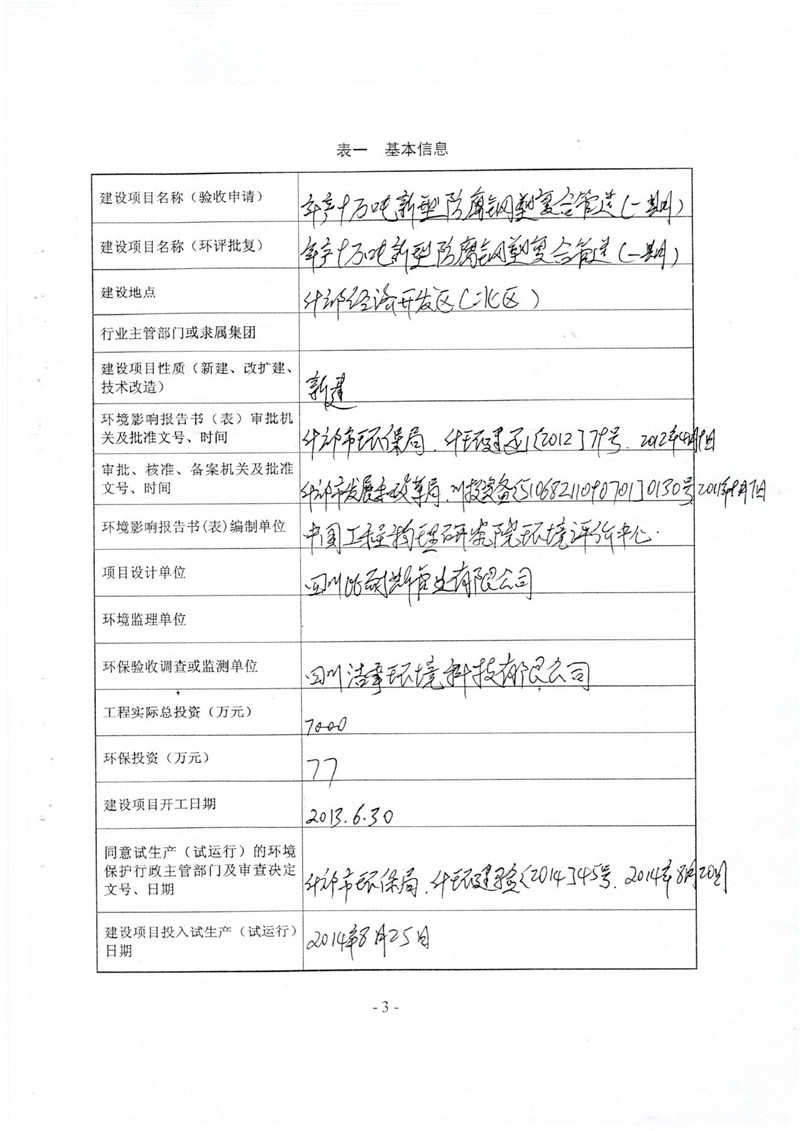 表一 基本信息
建设项目名称（验收申请）
年产十万吨新型防腐钢塑复合管道(一期)
建设项目名称（环评批复）
年产十万吨新型防腐钢塑复合管道(一期)
建设地点
什邡经济开发区(北区)
行业主管部门或隶属集团
建设项目性质（新建、改扩建、
技术改造）
新建
环境影响报告书（表）审批机
关及批准文号、时间
什邡市环保局、什环建函[2012]79号、2012年4月9日
审批、核准、备案机关及批准
文号、时间
什邡市发展和改革局,川投资备[51068211090701]0130号2011年9月7日
环境影响报告书(表)编制单位
中国工程物理研究院环境评价中心.
项目设计单位
四川 管业有限公司
环境监理单位
环保验收调查或监测单位
四川洁 环境科技有限公司
工程实际总投资（万元）
7000
环保投资（万元）
77
建设项目开工日期
2013.6.30
同意试生产（试运行）的环境
保护行政主管部门及审查决定
文号、日期
什邡市环保局、什环建验[2014]45号、2014年8月20日
建设项目投入试生产（试运行）
日期
2014年8月25日
- 3 -